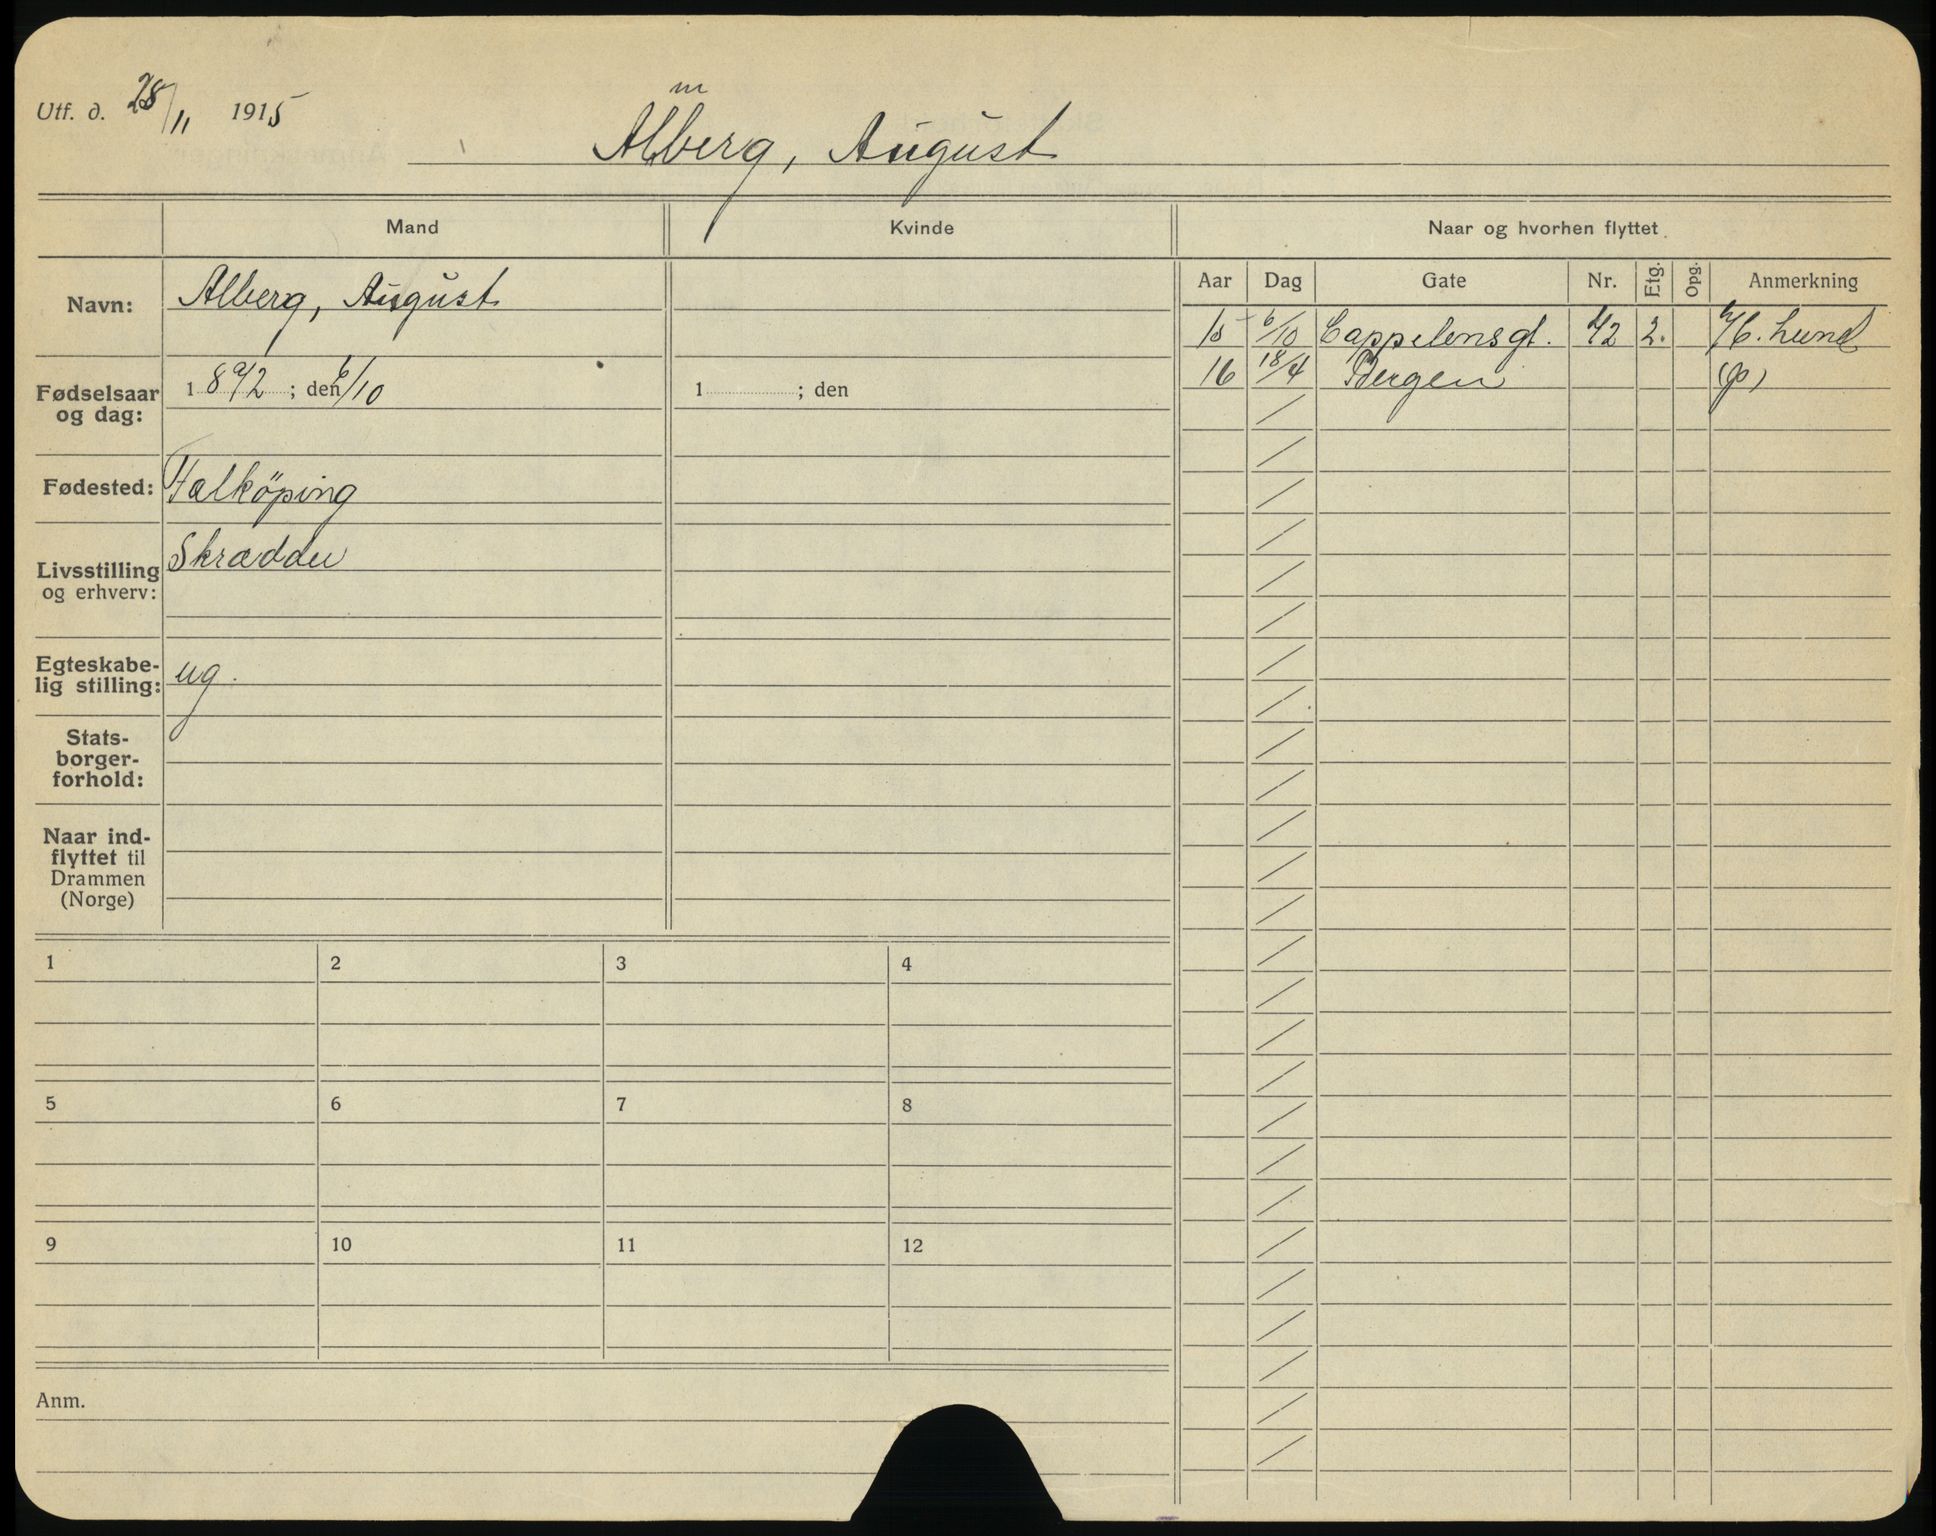 Utf. d. 28/11 1915
m
Alberg, August
Mand
Kvinde
Naar og hvorhen flyttet
Navn:
Alberg, August
Aar Dag Gate Nr. Etg. Opg. Anmerkning
15 6/10 Cappelensgt. 42 2. h/C. Lund
16 18/4 Bergen (p)
Fødselsaar og dag:
1892; den 6/10
1 ; den
Fødested:
Falköping
Livsstilling og erhverv:
Skrædder
Egteskabe-
lig stilling:
ug.
Stats-
borger-
forhold:
Naar ind-
flyttet til
Drammen
(Norge)
1 2 3 4
5 6 7 8
9 10 11 12
Anm.